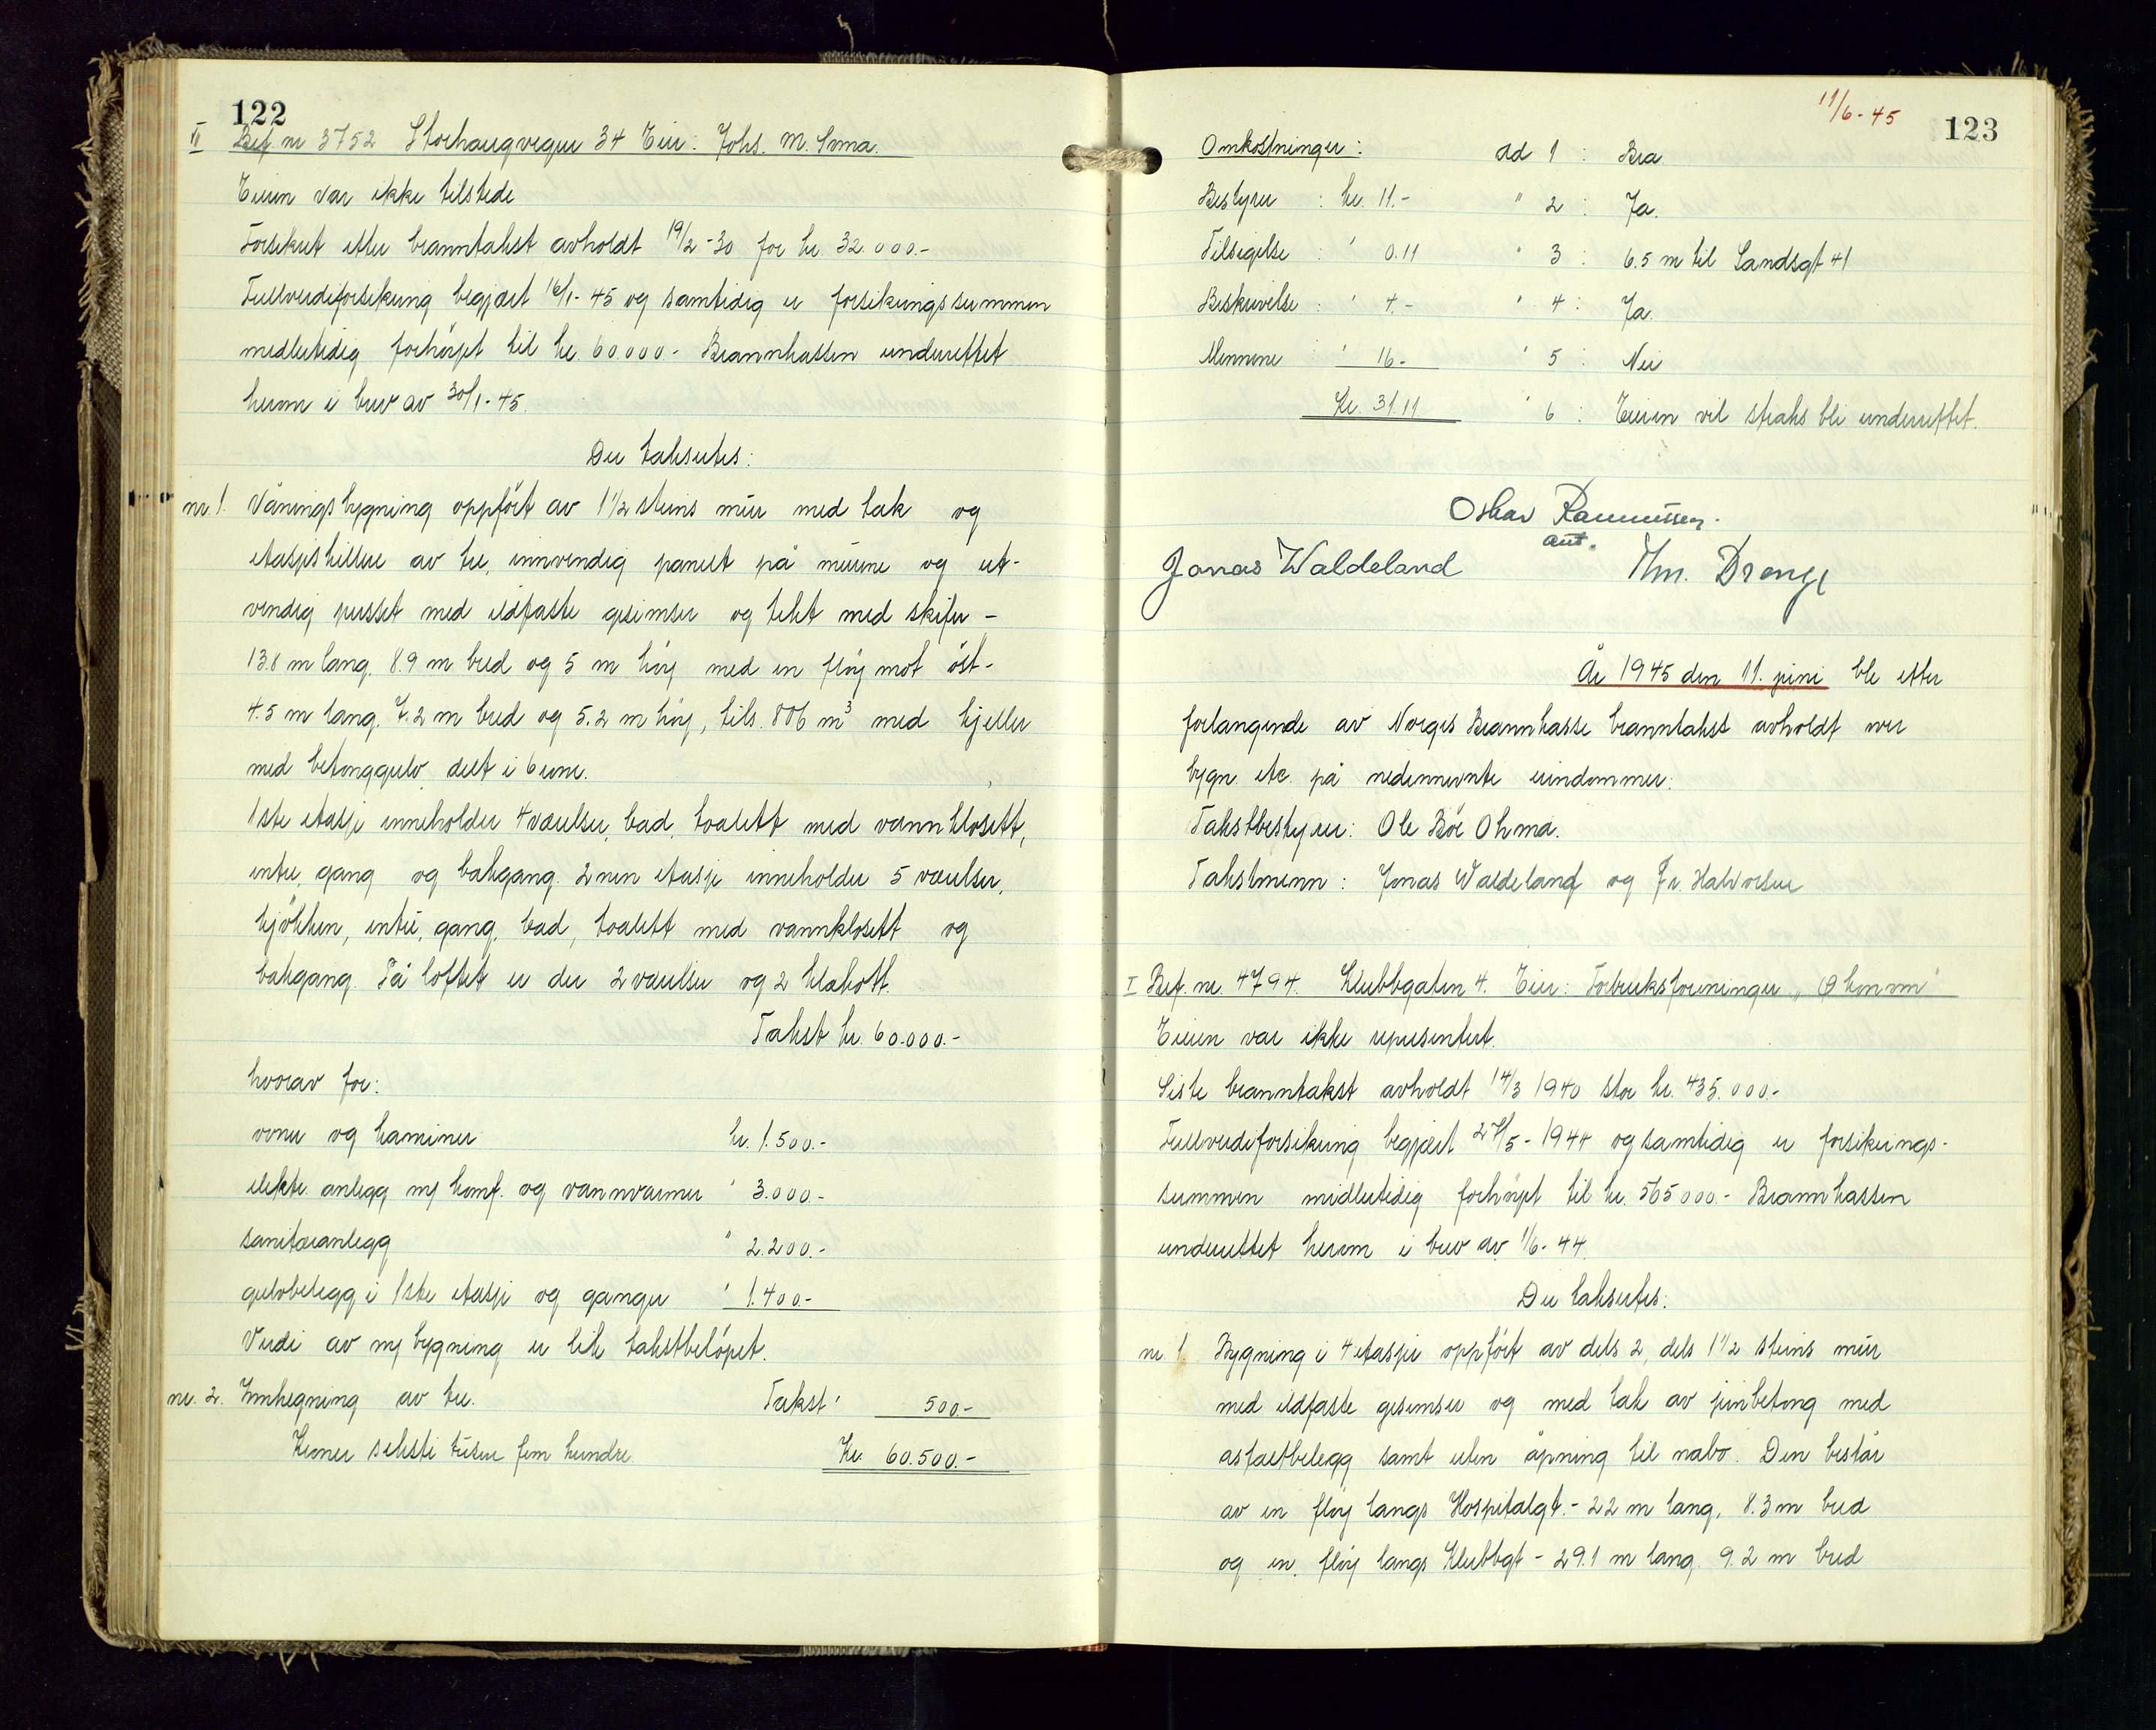 122
II Bef. nr 3752 Storhaugveger 34 Eier: Johs. M. Soma.
Eieren var ikke tilstede
Forsikret etter branntakst avholdt 19/2-30 for kr. 32 000.-
Fullverdiforsikring begjært 16/1-45 og samtidig er forsikringssummen
midlertidig forhöyet til kr. 60.000- Brannkassen underrettet
herom i brev av 30/1-45.
Der takseres:
nr. 1. Våningsbygning oppfört av 1 1/2 steins mur med tak og
etasjeskiller av tre, innvendig panelt på murene og ut-
vendig pusset med ildfaste gesimser og tekt med skifer -
13.8 m lang, 8.9 m bred og 5 m höy med en flöy mot öst -
4.5 m lang, 7.2 m bred og 5.2 m höy, tils. 806 m³ med kjeller
med betonggulv, delt i 6 rom.
1ste etasje inneholder 4 værelser, bad, toalett med vannklosett,
entre, gang og bakgang. 2nen etasje inneholder 5 værelser,
kjökken, entré, gang, bad, toalett med vannklosett og
bakgang. På loftet er der 2 værelser og 2 klækott.
Takst kr. 60.000.-
hvorav for:
ovner og kaminer kr. 1.500.-
elektr. anlegg m/ komf. og vannvarmer " 3.000.-
sanitæranlegg " 2.200.-
gulvbelegg i 1ste etasje og ganger " 1.400.-
Verdi av ny bygning er lik takstbelöpet.
nr. 2. Innhegning av tre. Takst " 500.-
Kroner seksti tusen fem hundre Kr. 60.500.-
11/6-45
123
Omkostninger: ad 1 : Bra
Bestyrer : kr. 11.- " 2 : Ja.
Tilsigelse : " 0.11 " 3 : 6.5 m til Landsgt 41
Beskrivelse : " 4.- " 4 : Ja.
Mennene " 16.- " 5 : Nei
Kr. 31.11 " 6 : Eieren vil straks bli underrettet.
Oskar Rasmussen.
ast.
Jonas Waldeland Thv. Drange
År 1945 den 11. juni ble etter
forlangende av Norges Brannkasse branntakst avholdt over
bygn. etc. på nedennevnte eiendommer:
Takstbestyrer: Ole Bör Ohma.
Takstmenn: Jonas Waldeland og Fr. Halvorsen
I Bef. nr. 4794. Klubbgaten 4. Eier: Forbruksforeningen „Ökonom"
Eieren var ikke representert.
Siste branntakst avholdt 14/3 1940 stor kr. 435.000.-
Fullverdiforsikring begjært 27/5-1944 og samtidig er forsikrings-
summen midlertidig forhöyet til kr. 565000.- Brannkassen
underrettet herom i brev av 1/6-44.
Der takseres:
nr. 1. Bygning i 4 etasjer oppfört av dels 2, dels 1 1/2 steins mur
med ildfaste gesimser og med tak av jernbetong med
asfaltbelegg samt uten åpning til nabo. Den består
av en flöy langs Hospitalgt. - 22 m lang, 8.3 m bred
og en flöy langs Klubbgt - 29.1 m lang, 9.2 m bred